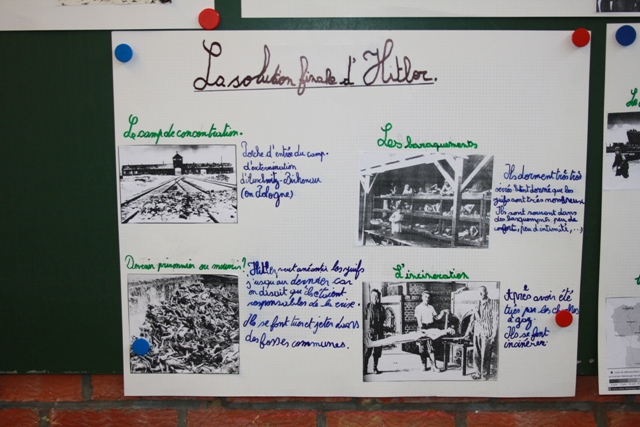 La solution finale d'Hitler.
Le camp de concentration.
Porche d'entrée du camp
d'extermination
d'Auschwitz-Birkenau
(en Pologne)
Les baraquements
Ils dorment très très
serrés étant donné que les
juifs sont très nombreux
Ils sont souvent dans
des baraquements peu de
confort, peu d'intimité, ...)
Devenir prisonnier ou mourir?
Hitler veut anéantir les juifs
jusqu'au dernier car
on disait qu'ils étaient
responsables de la crise.
Ils se font tuer et jeter dans
des fosses communes.
L'incinération
Après avoir été
tués par les
à gaz
Ils se font
incinérer